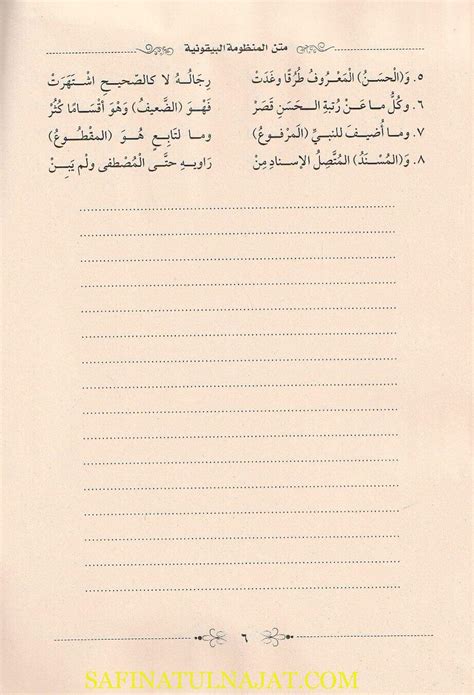 متن المنظومة البيقونية
٥. وَ(الْحَسَنُ) الْمَعْرُوفُ طُرْقًا وغَدَتْ رِجَالُهُ لا كالصّحيحِ اشْتَهَرَتْ
٦. وكُلُّ ما عَنْ رُتبةِ الحَسَنِ قَصَرْ فَهْوَ (الضَّعيفُ) وَهْوَ أقْسَامًا كُثُرْ
٧. وما أُضيفَ للنبيِّ (المَرْفوعُ) وما لتَابِعٍ هُوَ (المقْطُوعُ)
٨. وَ(المُسْنَدُ) المُتَّصِلُ الإسنادِ مِنْ راويهِ حتَّى الْمُصْطفى ولم يَبِنْ
٦
SAFINATULNAJAT.COM